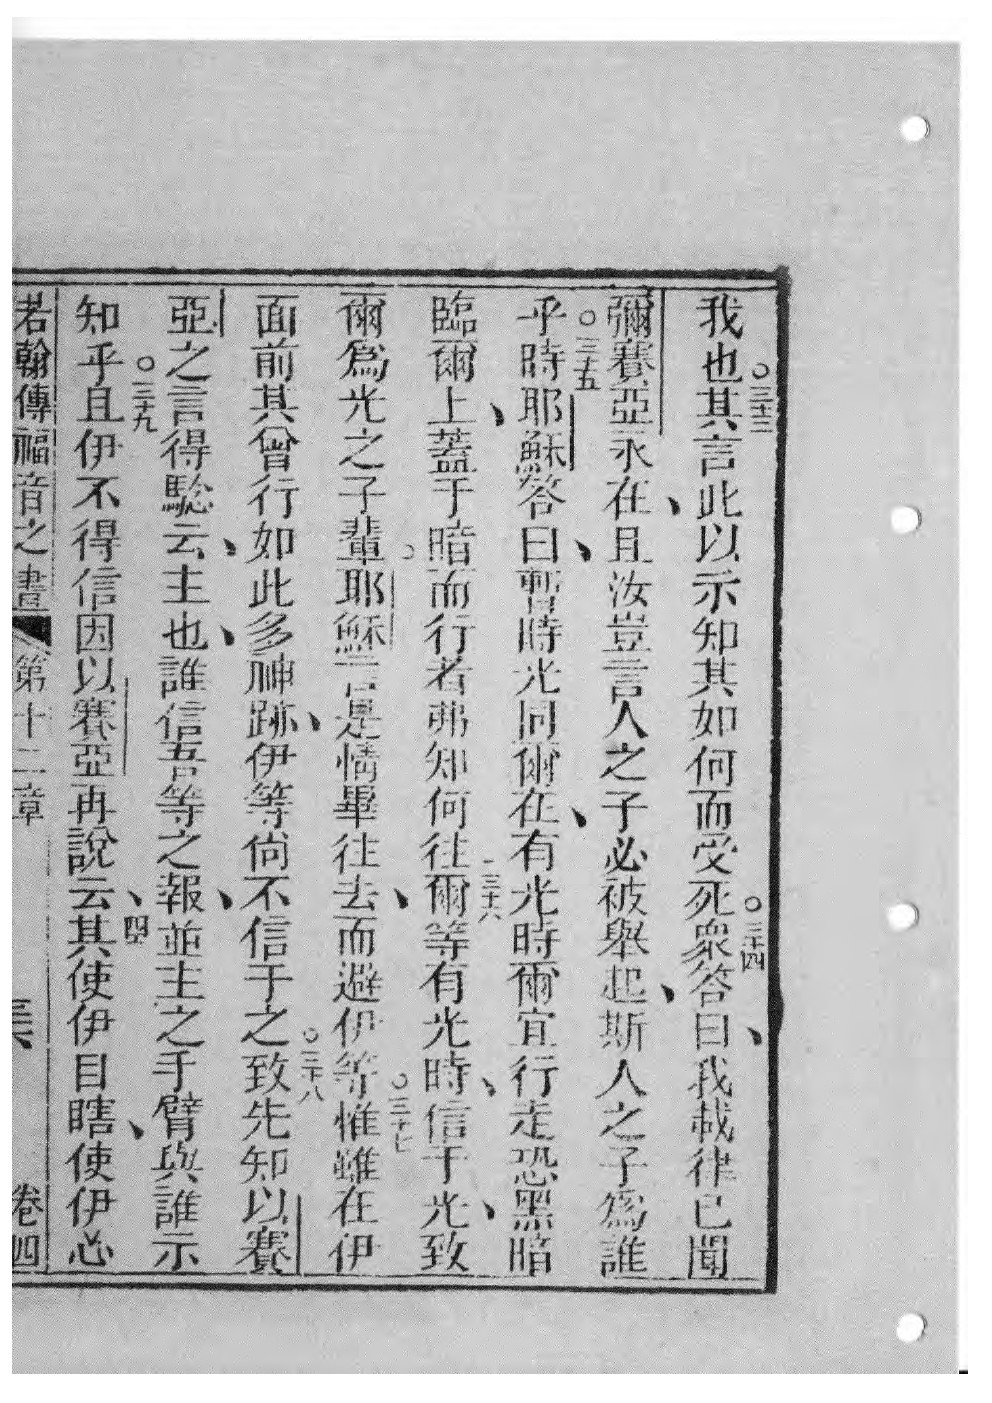 我也○三十三其言此以示知其如何而受死○三十四衆答曰、我載律已聞
彌賽亞永在、且汝豈言人之子必被舉起、斯人之子爲誰
乎○三十五時耶穌答曰、暫時光同爾在、有光時爾宜行走恐黑暗
臨爾上、蓋于暗而行者弗知何往三十六爾等有光時、信于光、致
爾爲光之子輩○耶穌言是情畢往去、而避伊等○三十七惟雖在伊
面前其曾行如此多神跡、伊等尙不信于之○三十八致先知以賽
亞之言得騐云、主也、誰信吾等之報、並主之手臂與誰示
知乎○三十九且伊不得信因以賽亞再說云、四十其使伊目瞎、使伊心
若翰傳福音之書 第十二章 卷四